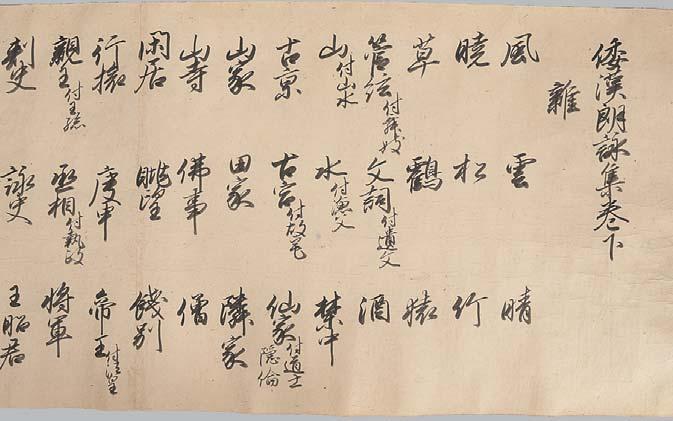 倭漢朗詠集巻下
雜
風 雲 晴
曉 松 竹
草 鶴 猿
管絃付舞妓 文詞付遺文 酒
山付山水 水付漁父 禁中
古京 古宮付故宅 仙家付道士隠倫
山家 田家 隣家
山寺 佛事 僧
閑居 眺望 餞別
行旅 庚申 帝王付法皇
親王付王孫 丞相付執政 将軍
刺史 詠史 王昭君